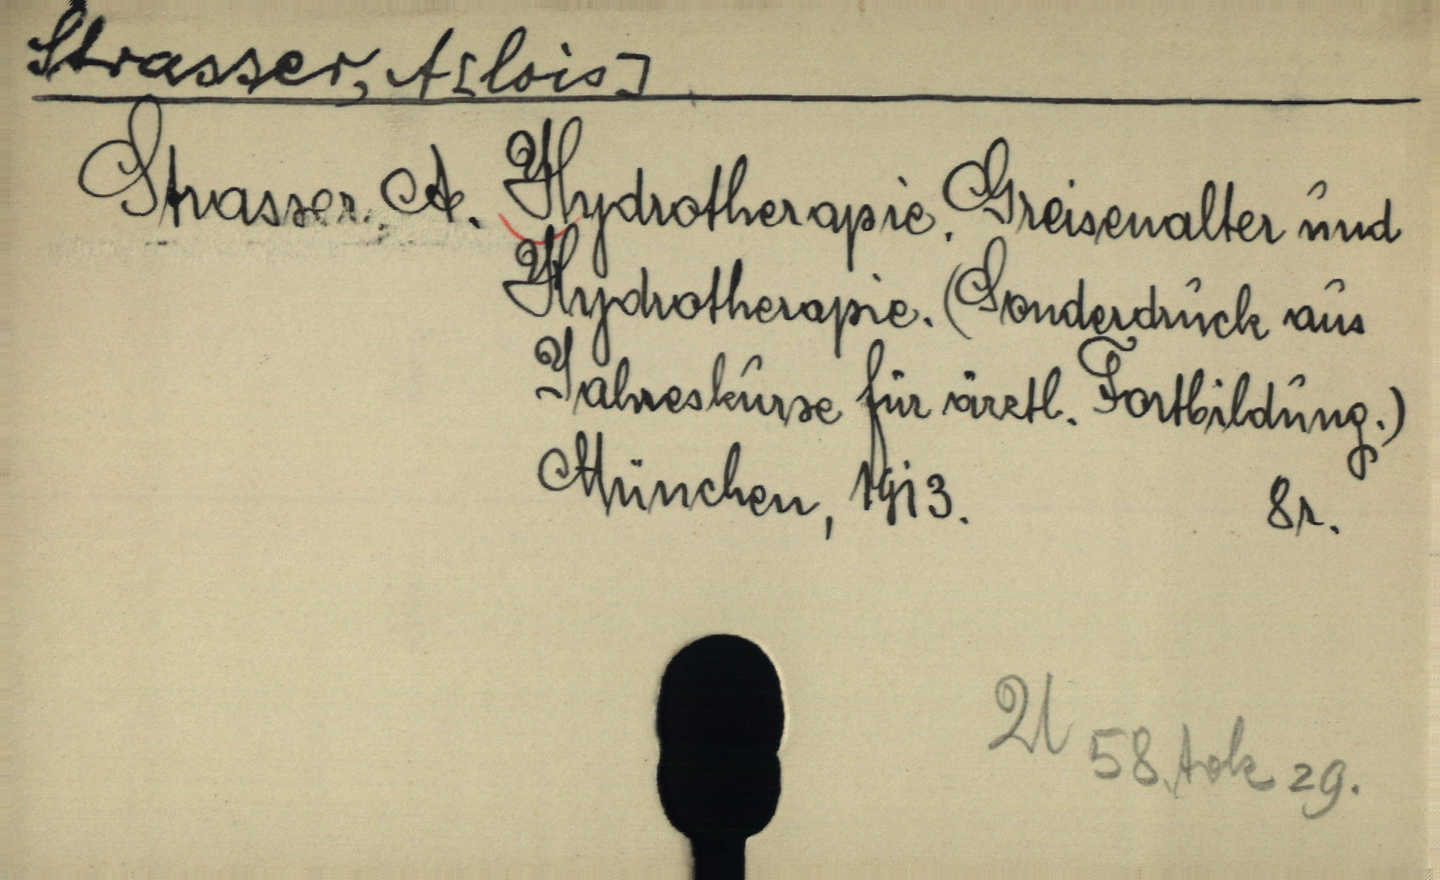 Strasser, A[lois]
Strasser, A. Hydrotherapie. Greisenalter und
Hydrotherapie. (Sonderdruck aus
Jahreskurse für ärztl. Fortbildung.)
München, 1913. 8r.
58. tok 29.